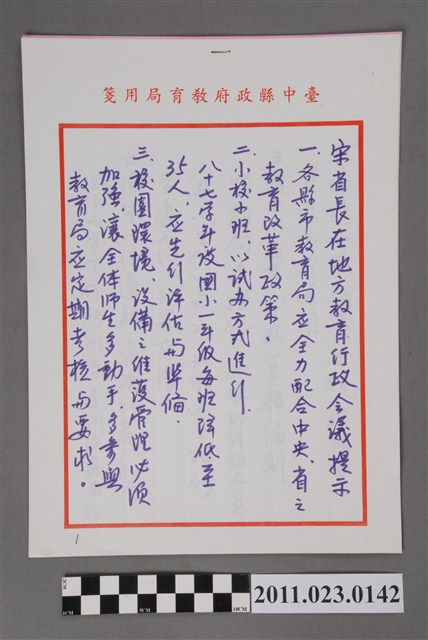 臺中縣政府教育局用箋
宋省長在地方教育行政会議提示
一、各縣市教育局应全力配合中央、省之
教育改革政策。
二、小校小班,以試办方式進行.
八十七学年度國小一年级每班降低至
35人,应先行评估与準備.
三、校園環境、設備之維護管理必須
加強,讓全体師生多動手、多参與
教育局应定期考核与要求。
1
1CM 5CM 10CM
2011.023.0142